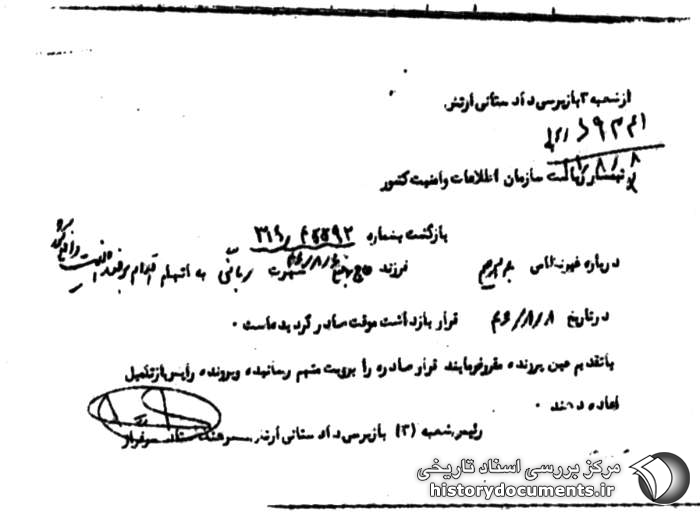 از شعبه ۳ بازپرسی دادستانی ارتش
به تیمسار ریاست سازمان اطلاعات و امنیت کشور
بازگشت بشماره ۳۱۶/۴۵۵۹۲
۴۶/۸/۶
درباره غیرنظامی فرزند حاج شهرت ربانی به اتهام اقدام برضد امنیت داخلی
در تاریخ ۴۶/۸/۸ قرار بازداشت موقت صادر گردیده است .
با تقدیم عین پرونده مقرر فرمایند قرار صادره را برویت متهم رسانیده و پرونده را پس از تکمیل
اعاده دهند .
رئیس شعبه (۳) بازپرسی دادستانی ارتش سرهنگ ستاد سرفراز
مرکز بررسی اسناد تاریخی
historydocuments.ir